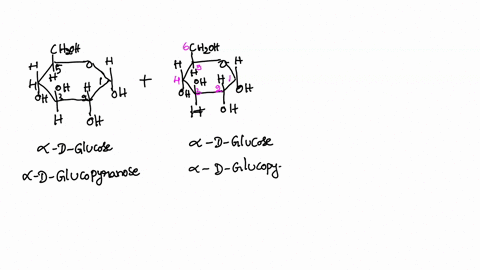 CH2OH
H 5 O H
H 4 OH H 1
OH 3 2 OH
H OH
+
6 CH2OH
H 5 O H
4 H OH H 1
OH 3 2 OH
H OH
α-D-Glucose
α-D-Glucopyranose
α-D-Glucose
α-D-Glucopy-